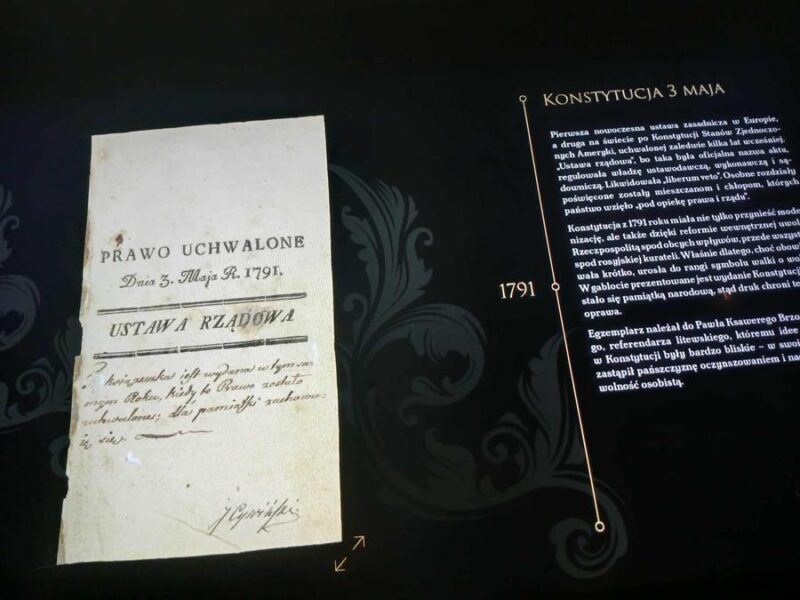 PRAWO UCHWALONE
Dnia 3. Maja R. 1791.
USTAWA RZĄDOWA
książeczka jest wydana w tym sa-
mym Roku, kiedy to Prawo zostało
uchwalone; dla pamiątki zachowu-
ię się.
J Cywiński
KONSTYTUCJA 3 MAJA
Pierwsza nowoczesna ustawa zasadnicza w Europie,
a druga na świecie po Konstytucji Stanów Zjednoczo-
nych Ameryki, uchwalonej zaledwie kilka lat wcześniej.
„Ustawa rządowa", bo taka była oficjalna nazwa aktu,
regulowała władzę ustawodawczą, wykonawczą i są-
downiczą. Likwidowała „liberum veto". Osobne rozdziały
poświęcone zostały mieszczanom i chłopom, których
państwo wzięło „pod opiekę prawa i rządu".
Konstytucja z 1791 roku miała nie tylko przynieść mode
nizację, ale także dzięki reformie wewnętrznej uwol
Rzeczpospolitą spod obcych wpływów, przede wszys
spod rosyjskiej kurateli. Właśnie dlatego, choć obow
wała krótko, urosła do rangi symbolu walki o wo
W gablocie prezentowane jest wydanie Konstytuc
stało się pamiątką narodową, stąd druk chroni te
oprawa.
Egzemplarz należał do Pawła Ksawerego Brzo
go, referendarza litewskiego, któremu idee
w Konstytucji były bardzo bliskie – w swoi
zastąpił pańszczyznę oczynszowaniem i na
wolność osobistą.
1791